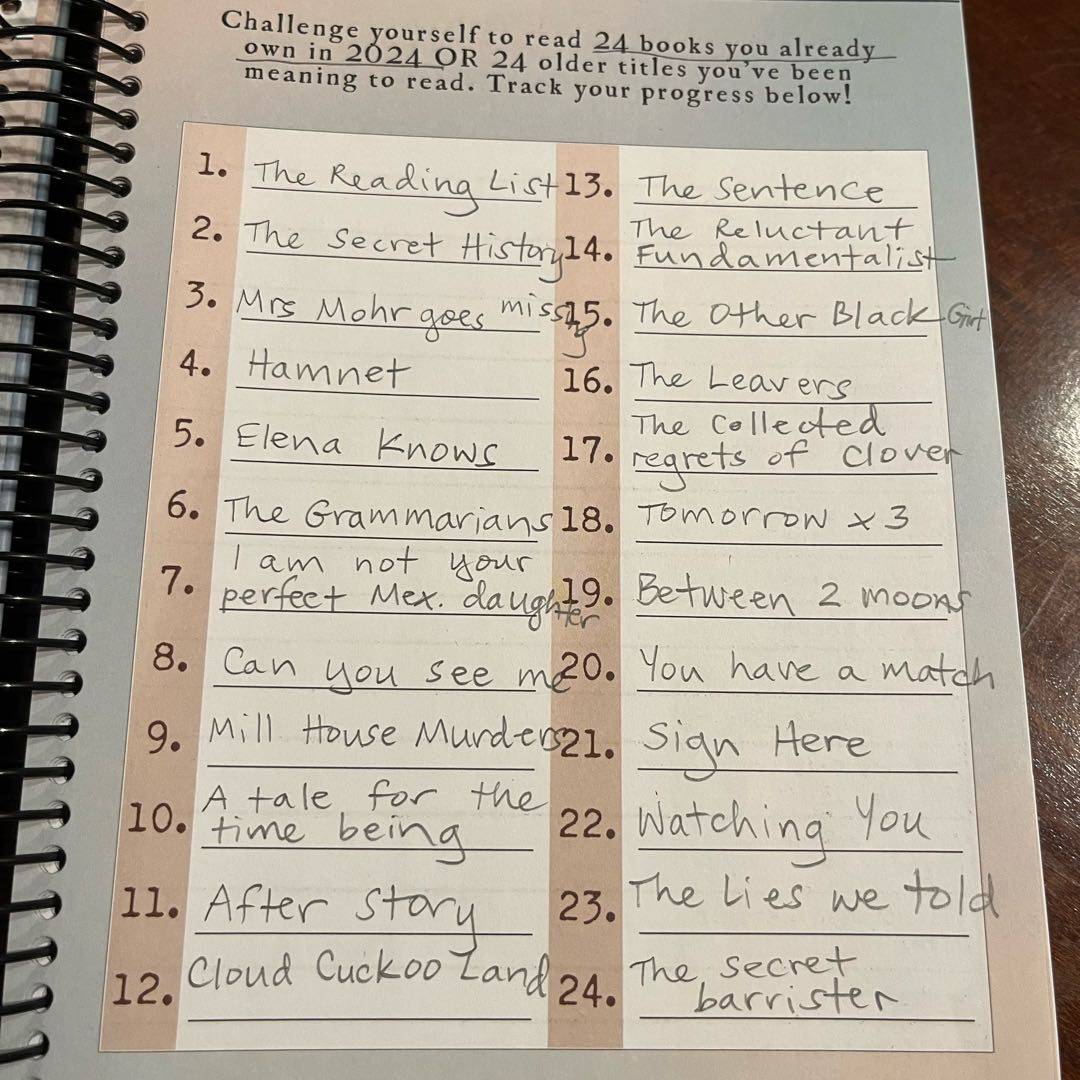 Challenge yourself to read 24 books you already
own in 2024 OR 24 older titles you've been
meaning to read. Track your progress below!
1. The Reading List
2. The Secret History
3. Mrs Mohr goes missing
4. Hamnet
5. Elena Knows
6. The Grammarians
7. I am not your
perfect Mex. daughter
8. Can you see me
9. Mill House Murders
10. A tale for the
time being
11. After Story
12. Cloud Cuckoo Land
13. The Sentence
14. The Reluctant
Fundamentalist
15. The Other Black Girl
16. The Leavers
17. The Collected
regrets of Clover
18. Tomorrow x 3
19. Between 2 moons
20. You have a match
21. Sign Here
22. Watching You
23. The Lies we told
24. The secret
barrister